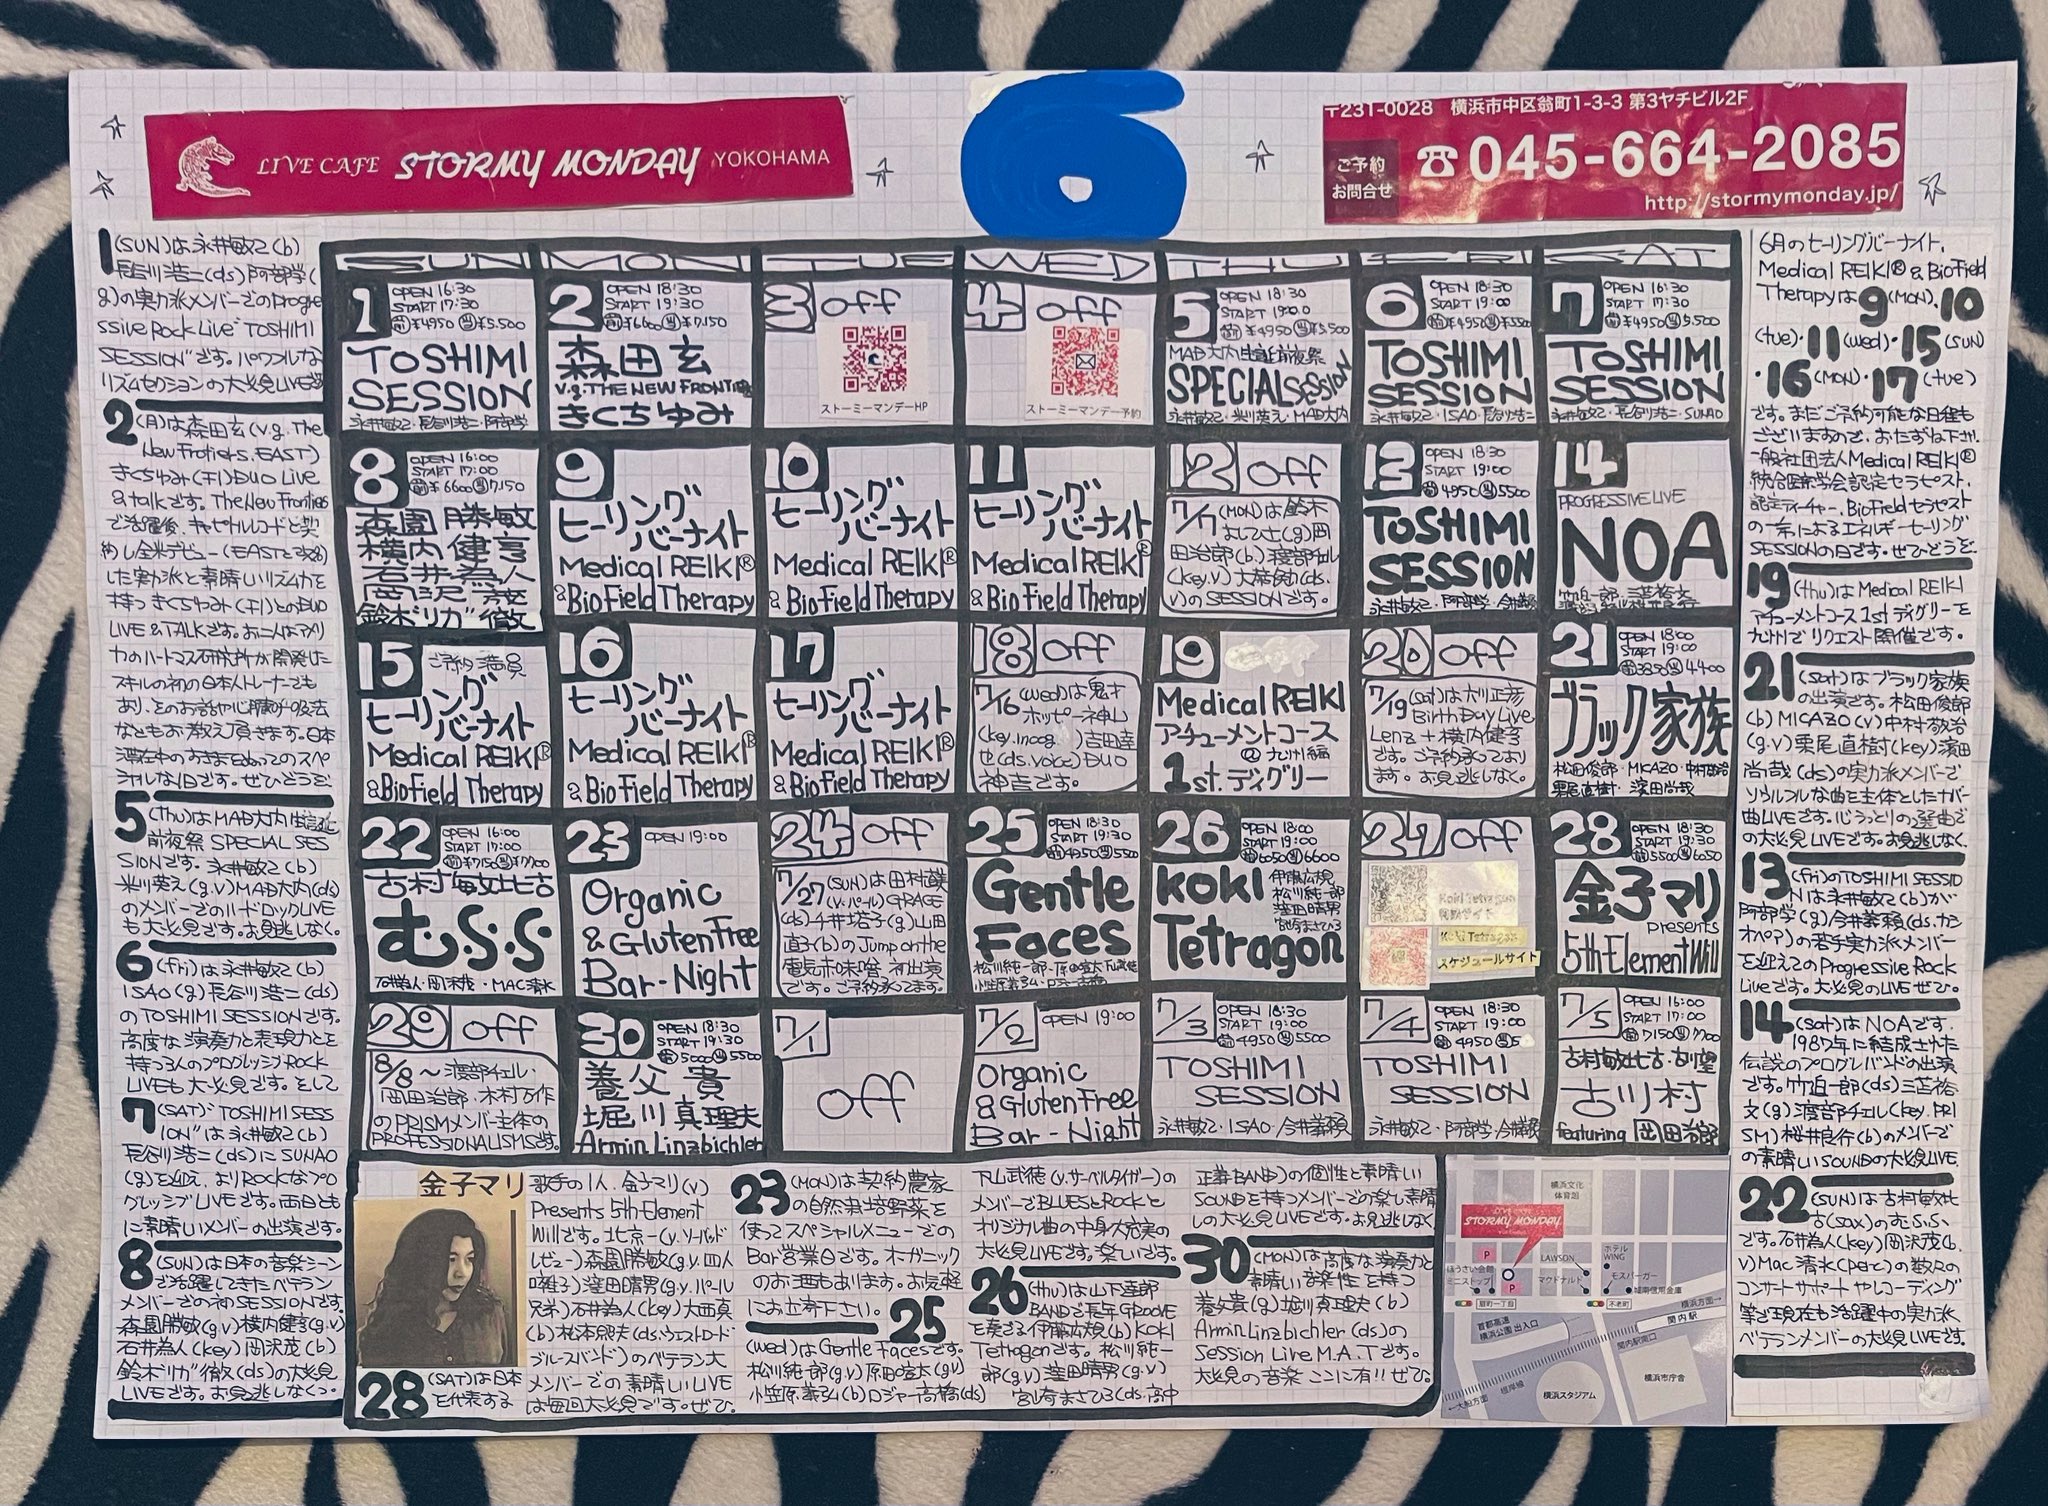 LIVE CAFE STORMY MONDAY YOKOHAMA
6
〒231-0028 横浜市中区翁町1-3-3 第3ヤチビル2F
ご予約
お問合せ
☎045-664-2085
http://stormymonday.jp/
1(SUN)は永井敏己(b)
長谷川浩二(ds)阿部学(
g)の実力派メンバーでのProgre
ssive Rock Live"TOSHIMI
SESSION"です。パワフルな
リズムセクションの大必見LIVEです
2(月)は森田玄(v.g.The
New Frotiers.EAST)
きくちゆみ(千)DUO Live
&talkです。The New Frontiers
で活躍後、キャピトルレコードと契
約し全米デビュー(EASTと改名)
した実力派と素晴しいリズム力を
持つきくちゆみ(千)とのDUO
LIVE&TALKです。お二人はアメリ
カのハートマス研究所が開発した
スキルの初の日本人トレーナーでも
あり、そのお話や心臓呼吸法
などもお教え頂きます。日本
滞在中のお二人
シャルな1日です。ぜひどうぞ
5(Thu)はMAD大内生誕
前夜祭 SPECIAL SES
SIONです。永井敏己(b)
米川英え(g.v)MAD大内(ds)
のメンバーでのハードロックLIVE
も大必見です。お見逃しなく。
6(fri)は永井敏己(b)
ISAO(g)長谷川浩二(ds)
のTOSHIMI SESSIONです。
高度な演奏力と表現力とを
持つ3人のプログレッシブROCK
LIVEも大必見です。そして
7(SAT)"TOSHIMI SESS
ION"は永井敏己(b)
長谷川浩二(ds)にSUNAO
(g)を迎え、よりROCKなプロ
グレッシブLIVEです。両日とも
に素晴しいメンバーの出演です。
8(SUN)は日本の音楽シーン
で活躍してきたベテラン
メンバーでの初SESSIONです。
森園勝敏(g.v)横内健亨(g.v)
石井為人(key)岡沢茂(b)
鈴木"リカ"徹(ds)の大必見
LIVEです。お見逃しなくっ。
SUN MON TUE WED THU FRI SAT
1 OPEN 16:30
START 17:30
前¥4950当¥5.500
TOSHIMI
SESSION
永井敏己・長谷川浩二・阿部学
2 OPEN 18:30
START 19:30
前¥6600当¥7.150
森田玄
v.g.THE NEW FRONTIERS
きくちゆみ
3 off
ストーミーマンデーHP
4 off
ストーミーマンデー予約
5 OPEN 18:30
START 19:00
前¥4950当¥5.500
MAD大内生誕前夜祭
SPECIAL SESSION
永井敏己・米川英え・MAD大内
6 OPEN 18:30
START 19:00
前¥4950当¥5500
TOSHIMI
SESSION
永井敏己・ISAO・長谷川浩二
7 OPEN 16:30
START 17:30
前¥4950当5.500
TOSHIMI
SESSION
永井敏己・長谷川浩二・SUNAO
8 OPEN 16:00
START 17:00
前¥6600当7.150
森園勝敏
横内健亨
石井為人
岡沢茂
鈴木"リカ"徹
9 ヒーリング
バーナイト
Medical REIKI®
&BioField Therapy
10 ヒーリング
バーナイト
Medical REIKI®
&BioField Therapy
11 ヒーリング
バーナイト
Medical REIKI®
&BioField Therapy
12 off
7/17(MON)は鈴木
よしひさ(g)岡
田治郎(b)渡部チェル
(key.v)
v)のSESSIONです。
13 OPEN 18:30
START 19:00
前4950当5500
TOSHIMI
SESSION
永井敏己・阿部学・今井義頼
14 PROGRESSIVE LIVE
NOA
竹迫一郎・三苫裕文
渡部チェル・桜井良行
15 ご予約満員
ヒーリング
バーナイト
Medical REIKI®
&BioField Therapy
16 ヒーリング
バーナイト
Medical REIKI®
&BioField Therapy
17 ヒーリング
バーナイト
Medical REIKI®
&BioField Therapy
18 off
7/16(wed)は鬼才
ホッピー神山
(key.incog)吉田達
也(ds.voice)DUO
神吉です。
19
Medical REIKI
アチューメントコース
@九州編
1st.ディグリー
20 off
7/19(sat)は大川正彦
BirthDay Live
Lenz+横内健亨
です。ご予約承っており
ます。お見逃しなく。
21 OPEN 18:00
START 19:00
前3850当4400
ブラック家族
松田俊郎・MICAZO・中村敬治
栗尾直樹・濱田尚哉
22 OPEN 16:00
START 17:00
前¥7150当¥7700
古村敏比古
むS・S
石井為人・岡沢茂・MAC清水
23 OPEN 19:00
Organic
&Gluten Free
Bar-Night
24 off
7/27(SUN)は田村直美
(v.パール)GRACE
(ds)千井塔子(g)山田
直子(b)のJump on the
電気赤味噌初出演
です。ご予約承ってます。
25 OPEN 18:30
START 19:30
前4950当5500
Gentle
Faces
松川純一郎・原田宣太
26 OPEN 18:00
START 19:00
前6050当6600
KOKI
Tetragon
伊藤広規
松川純一郎
窪田晴男
宮崎まさひろ
27 off
Koki Tetragon
スケジュールサイト
28 OPEN 18:30
START 19:30
前5500当6050
金子マリ
presents
5th Element Will
29 off
8/8〜渡部チェル・
岡田治郎、木村万作
のPRISMメンバー主体の
PROFESSIONALISMです。
30 OPEN 18:30
START 19:30
前5000当5500
養父貴
堀川真理夫
Armin Linzbichler
7/1
off
7/2 OPEN 19:00
Organic
&Gluten Free
Bar-Night
7/3 OPEN 18:30
START 19:00
前4950当5500
TOSHIMI
SESSION
永井敏己・ISAO・今井義頼
7/4 OPEN 18:30
START 19:00
前4950当5
TOSHIMI
SESSION
永井敏己・阿部学・今井義頼
7/5 OPEN 16:00
START 17:00
前7150当7700
古村敏比古・古川望
古川村
featuring 岡田治郎
6月のヒーリングバーナイト、
Medical REIKI®&BioField
Therapyは9(MON)、10
(tue)・11(wed)・15(SUN)
・16(MON)・17(tue)
です。まだご予約可能な日程も
ございますので、おたずね下さい。
一般社団法人Medical REIKI®
統合医学会認定セラピスト、
認定ティーチャー、BioFieldセラピスト
の一希によるエネルギーヒーリング
SESSIONの日です。ぜひどうぞ
19(thu)はMedical REIKI
アチューメントコース1stディグリーを
九州でリクエスト開催です。
21(sat)はブラック家族
の出演です。松田俊郎
(b)MICAZO(v)中村敬治
(g.v)栗尾直樹(key)濱田
尚哉(ds)の実力派メンバーで
ソウルフルな曲を主体としたナバー
曲LIVEです。心うつりの選曲で
の大必見LIVEです。お見逃しなく。
13(fri)のTOSHIMI SESSIO
Nは永井敏己(b)が
阿部学(g)今井義頼(ds.カシ
オペア)の若手実力派メンバー
を迎えてのProgressive Rock
Liveです。大必見のLIVEぜひ。
14(sat)はNOAです。
1987年に結成された
伝説のプログレバンドの出演
です。竹迫一郎(ds)三苫裕
文(g)渡部チェル(key.PRI
SM)桜井良行(b)のメンバーで
の素晴しいSOUNDの大必見LIVE。
22(SUN)は古村敏比
古(sax)のむS.S.
です。石井為人(key)岡沢茂(b.
v)Mac清水(perc)の数々の
コンサートサポートやレコーディング
等で現在も活躍中の実力派
ベテランメンバーの大必見LIVEです。
金子マリ
28(SAT)は日本
を代表する
歌手の1人、金子マリ(v)
Presents 5th Element
Willです。北京一(v.ソーバッド
レビュー)森園勝敏(g.v.四人
囃子)窪田晴男(g.v.パール
兄弟)石井為人(key)大西真
(b)松本照夫(ds.ウエストロード
ブルースバンド)のベテラン大
メンバーでの素晴しいLIVE
は毎回大必見です。ぜひ。
23(MON)は契約農家
の自然栽培野菜を
使ってスペシャルメニューでの
Bar営業日です。オーガニック
のお酒もあります。お気軽
にお立寄下さい。
25
(wed)はGentle Facesです。
松川純一郎(g.v)原田宣太(g.v)
小笠原義弘(b)ロジャー高橋(ds)
下山武徳(v.サーベルタイガー)の
メンバーでBLUESとRockと
オリジナル曲の中身大充実の
大必見LIVEです。楽しいです。
26(thu)は山下達郎
BANDで長年GROOVE
を奏でる伊藤広規(b)KOKI
Tetragonです。松川純一
郎(g.v)窪田晴男(g.v)
宮崎まさひろ(ds.高中
正義BAND)の個性と素晴しい
SOUNDを持つメンバーでの楽し素晴
しの大必見LIVEです。お見逃しなく
30(MON)は高度な演奏力と
素晴しい音楽性を持つ
養父貴(g)堀川真理夫(b)
Armin Linzbichler(ds)の
Session Live M.A.Tです。
大必見の音楽ここに有!!ぜひ。
横浜文化
体育館
LIVE CAFE
STORMY MONDAY
P
LAWSON
ホテル
WING
ほうさい会館
ミニストップ
P
マクドナルト
モスバーガー
城南信用金庫
扇町一丁目
不老町
横浜方面→
首都高速
横浜公園 出入口
関内駅
関内駅南口
根岸線
←大船方面
横浜スタジアム
横浜市庁舎